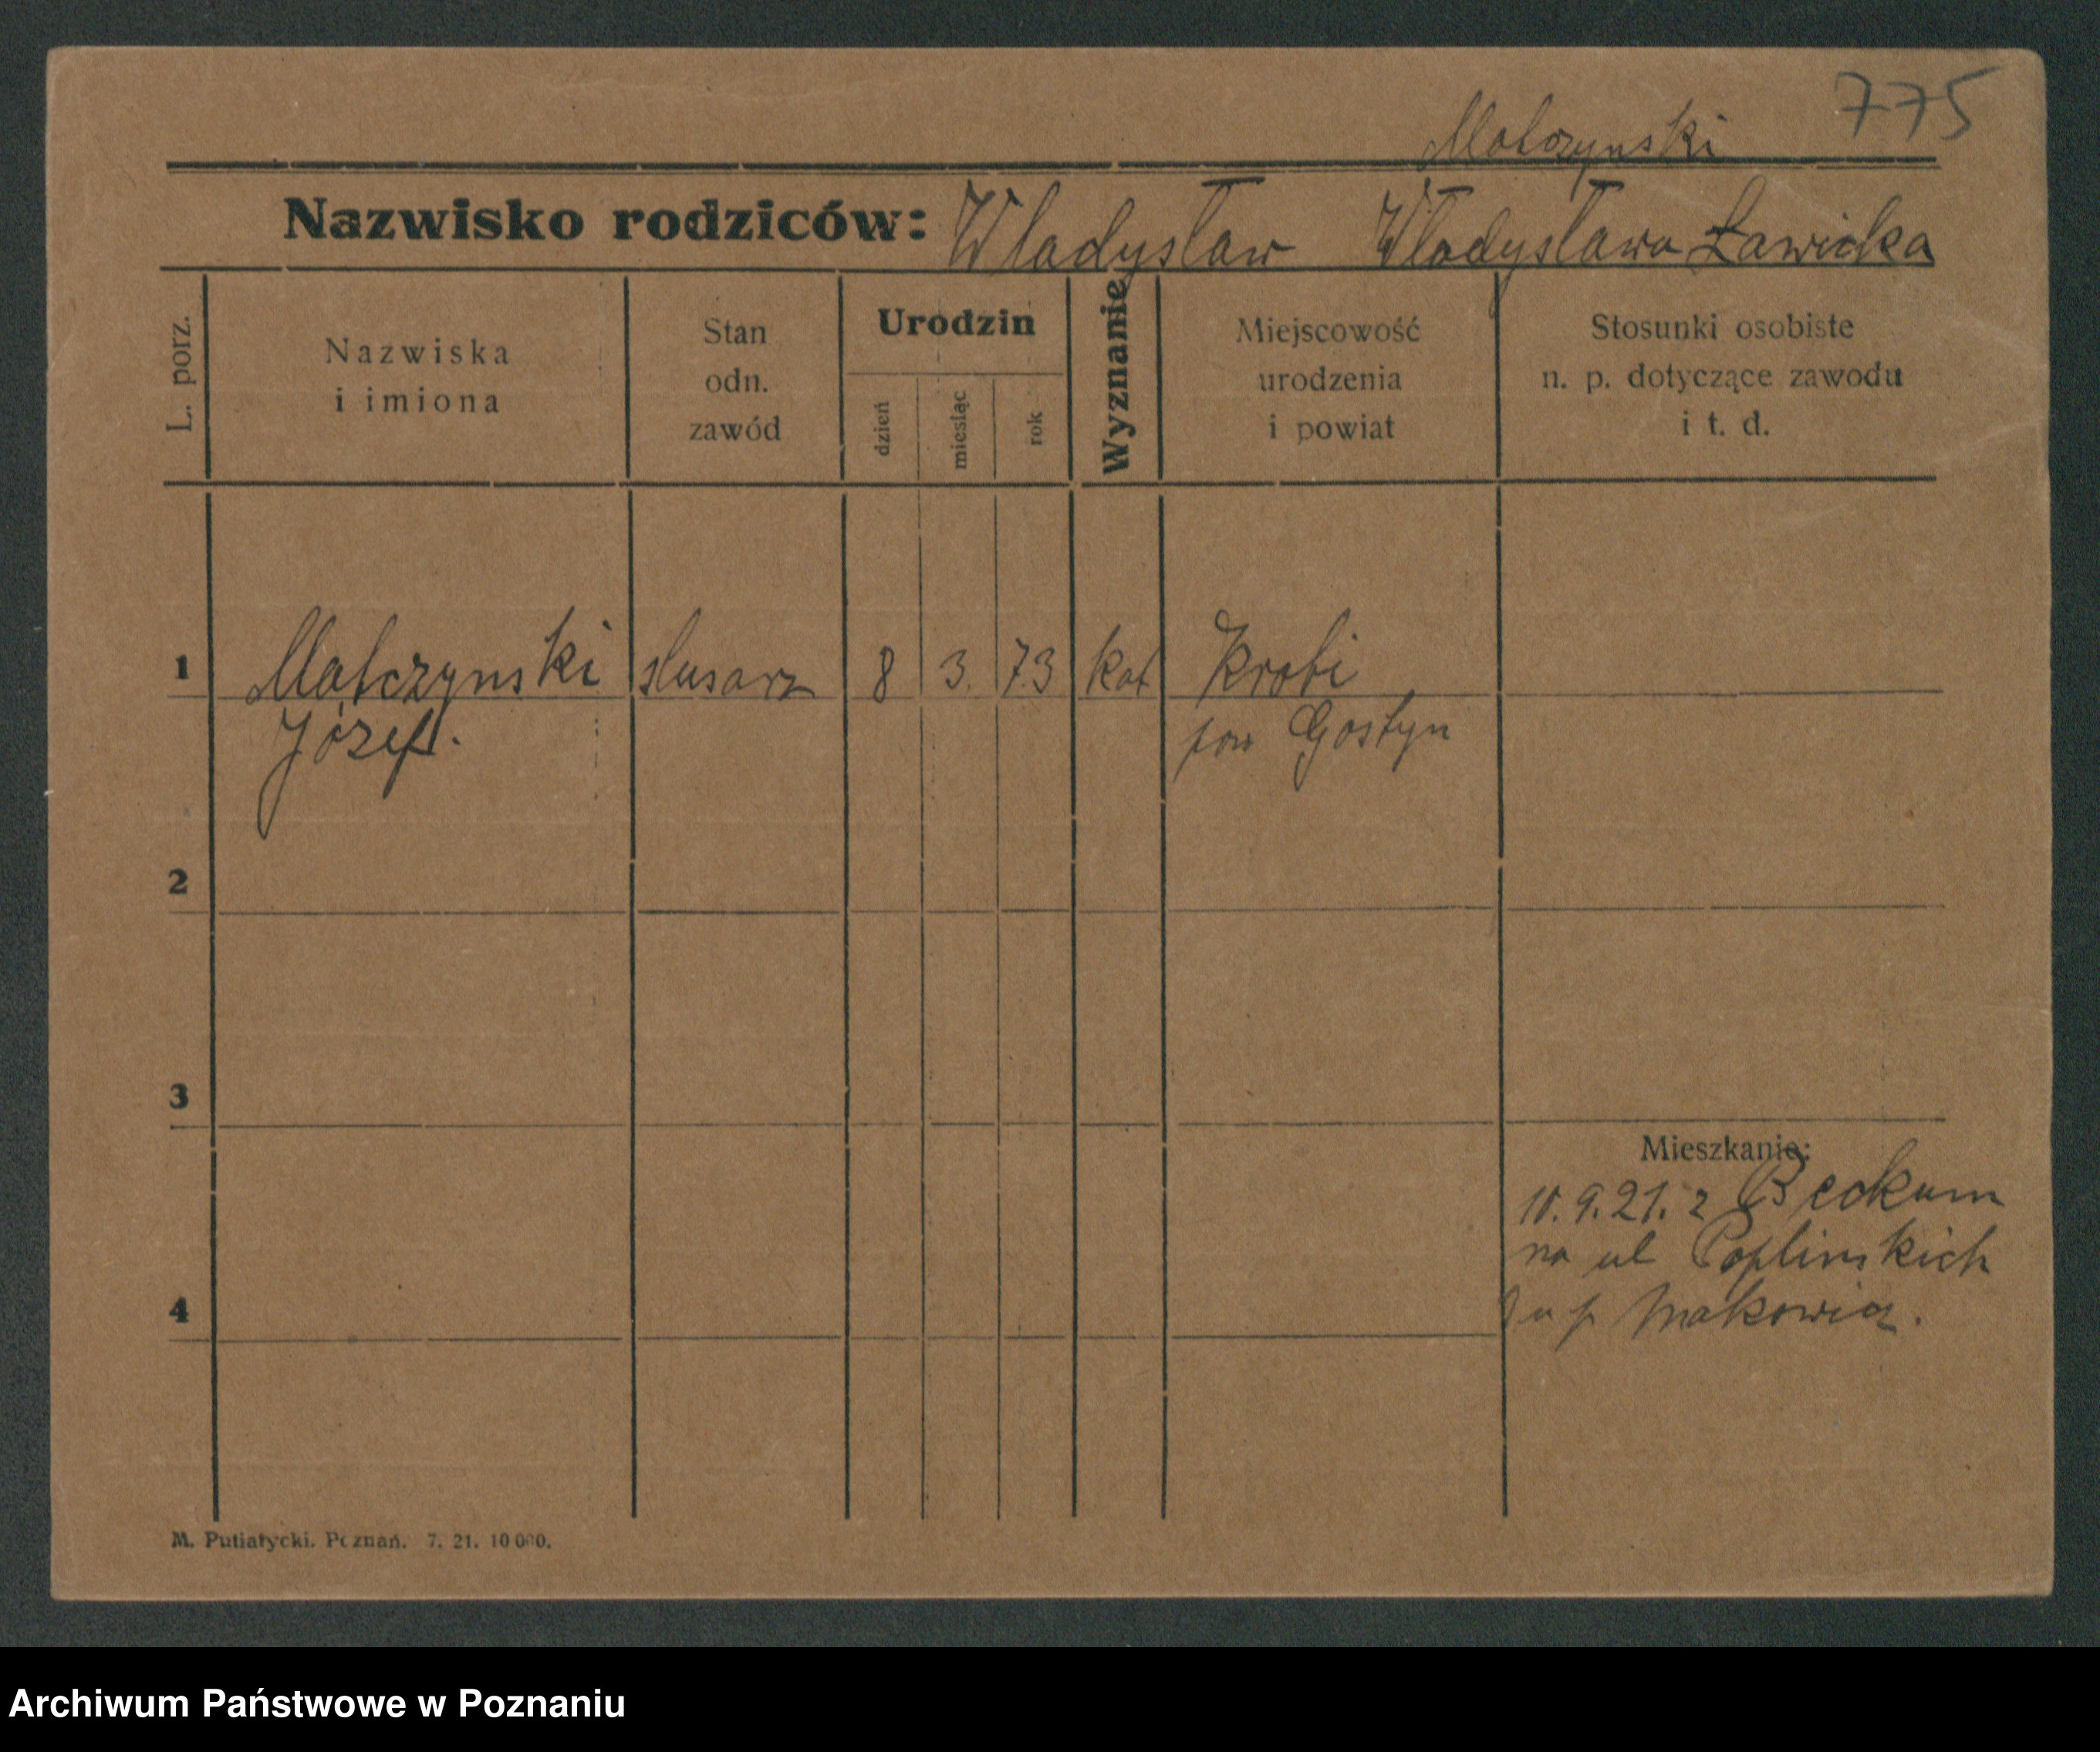 775
Malczynski
Nazwisko rodziców: Władysław Władysława Ławicka
L. porz.
Nazwiska
i imiona
Stan
odn.
zawód
Urodzin
dzień
miesiąc
rok
Wyznanie
Miejscowość
urodzenia
i powiat
Stosunki osobiste
n. p. dotyczące zawodu
i t. d.
1 Malczynski slusarz 8 3. 73 kat Krobi
Józef. pow Gostyn
2
3
Mieszkanie:
10. 9. 21. z Beckum
na ul Poplinskich
u p Makowicz.
4
M. Putiatycki. Poznań. 7. 21. 10 000.
Archiwum Państwowe w Poznaniu